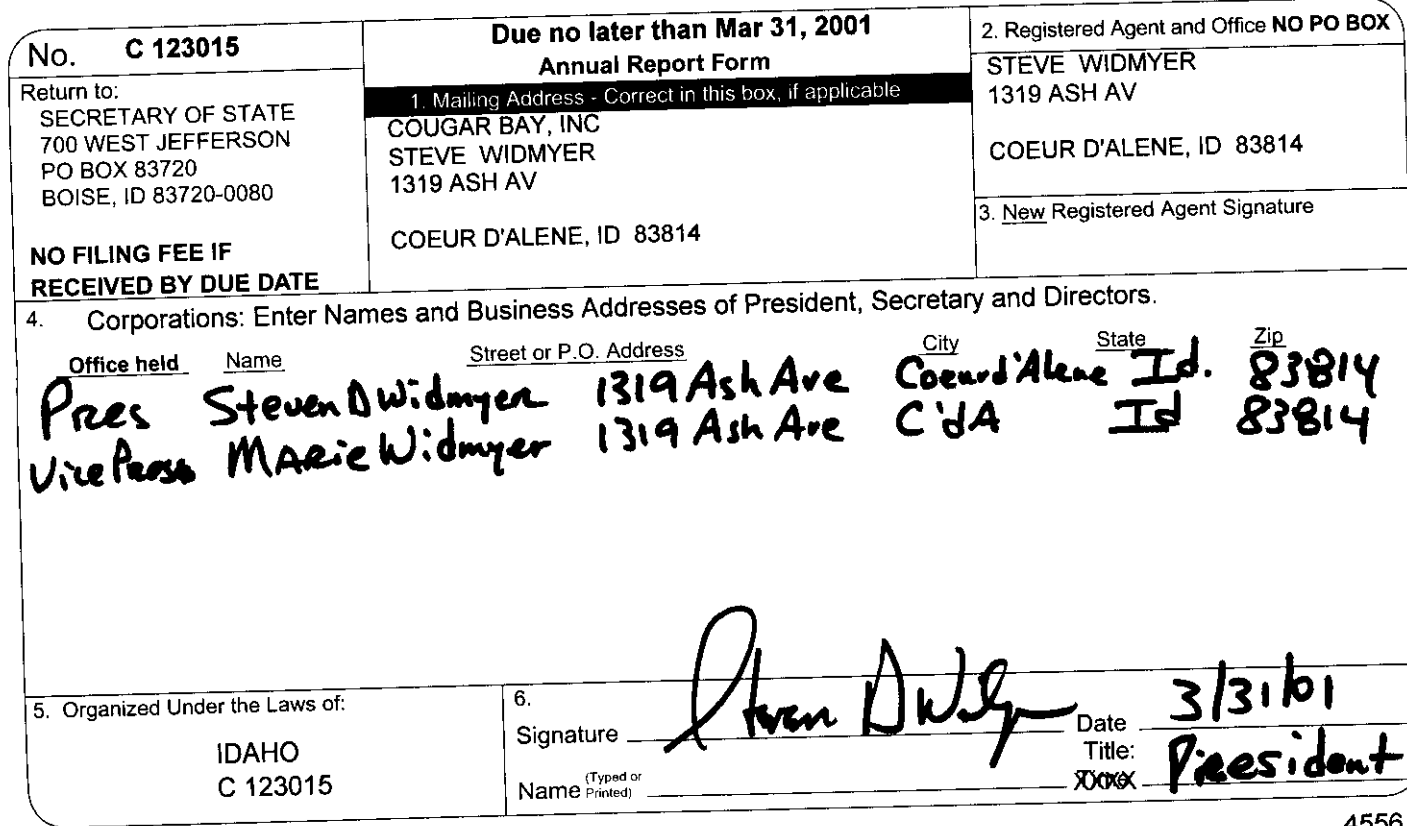 No. C 123015
Return to:
SECRETARY OF STATE
700 WEST JEFFERSON
PO BOX 83720
BOISE, ID 83720-0080
NO FILING FEE IF
RECEIVED BY DUE DATE
Due no later than Mar 31, 2001
Annual Report Form
1. Mailing Address - Correct in this box, if applicable
COUGAR BAY, INC
STEVE WIDMYER
1319 ASH AV
COEUR D'ALENE, ID 83814
2. Registered Agent and Office NO PO BOX
STEVE WIDMYER
1319 ASH AV
COEUR D'ALENE, ID 83814
3. New Registered Agent Signature
4. Corporations: Enter Names and Business Addresses of President, Secretary and Directors.
Office held Name Street or P.O. Address City State Zip
Pres Steven D Widmyer 1319 Ash Ave Coeur d'Alene Id. 83814
Vice Press Marie Widmyer 1319 Ash Ave C'dA Id 83814
5. Organized Under the Laws of:
IDAHO
C 123015
6.
Signature Steven D Widmyer Date 3/31/01
Name (Typed or Printed) Title: President
4556